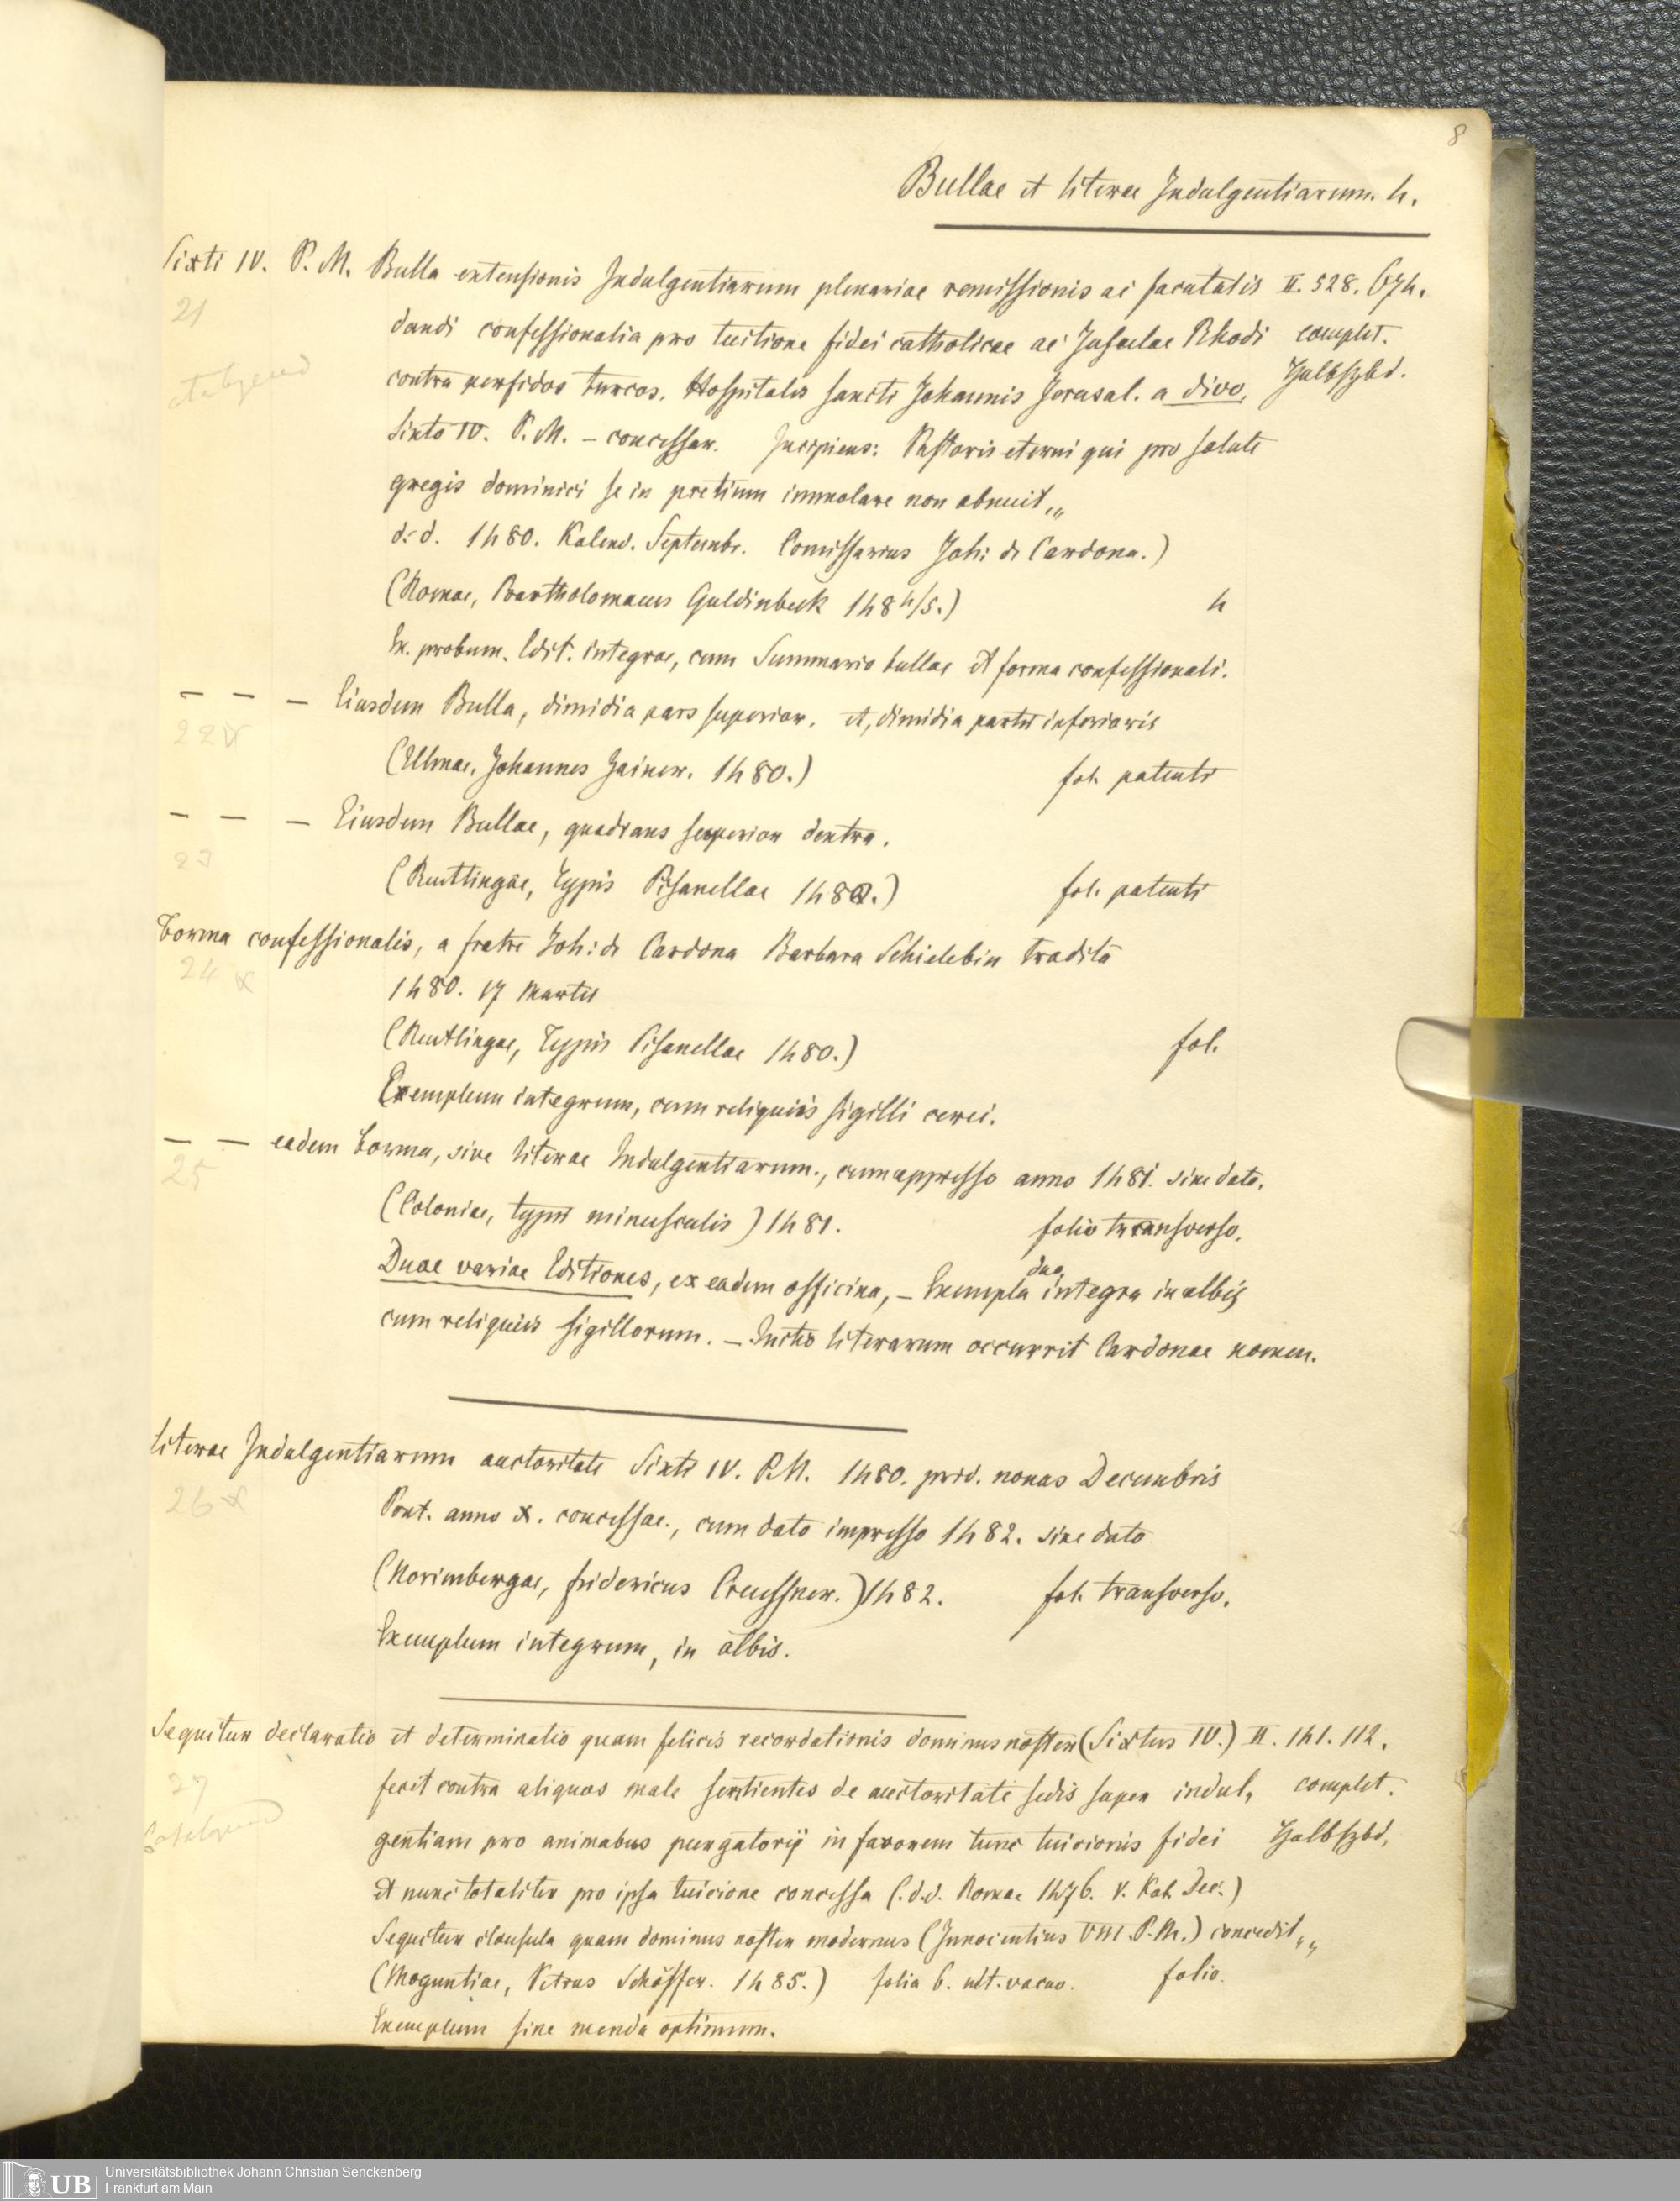 8
Bullae et literae Indulgentiarum. 4.
Sixti IV. P. M. Bulla extensionis Indulgentiarum plenariae remissionis ac facultatis II. 528. 674.
21
dandi confessionalia pro tuitione fidei catholicae ac Insulae Rhodi complet.
contra perfidos turcos. Hospitalis sancti Johannis Jerusal. a divo, Halbfzbd.
Sixto IV. P. M. – concessar. Incipiens: Pastoris eterni qui pro salute
gregis dominici se in pretium immolare non abnuit,,
d. d. 1480. Kalend. Septembr. Comissarius Joh: de Cardona.)
(Romae, Bartholomaeus Guldinbeck 1484/5.) 4
Ex. probum. Edit. integrae, cum Summario bullae et forma confessionali.
– – – Eiusdem Bulla, dimidia pars superior. et, dimidia partis inferioris
22 x
(Ulmae, Johannes Zainer. 1480.) fol. patenti
– – – Eiusdem Bullae, quadrans superior dextra.
23
(Reutlingae, Typis Pisanellae 1480.) fol. patenti
Forma confessionalis, a fratre Joh: de Cardona Barbara Schielebin tradita
24 x
1480. 17 Martis
(Reutlingae, Typis Pisanellae 1480.) fol.
Exemplum integrum, cum reliquiis sigilli cerei.
– – eadem Forma, sive literae Indulgentiarum., cum appresso anno 1481. sine dato.
25
(Coloniae, typis minusculis) 1481. folio transverso.
Duae variae Editiones, ex eadem officina, – Exempla duo integra in albis
cum reliquiis sigillorum. – Initio literarum occurrit Cardonae nomen.
Literae Indulgentiarum auctoritate Sixti IV. P. M. 1480. prid. nonas Decembris
26 x
Pont. anno X. concessae., cum dato impresso 1482. sine dato
(Norimbergae, Fridericus Creussner.) 1482. fol. transverso.
Exemplum integrum, in albis.
Sequitur declaratio et determinatio quam felicis recordationis dominus noster (Sixtus IV.) II. 141. 112.
27
fecit contra aliquos male sentientes de auctoritate sedis super indul, complet.
gentiam pro animabus purgatorij in favorem tunc tuicionis fidei Halbfzbd,
et nunc totaliter pro ipsa tuicione concessa (.d.d. Romae 1476. V. Kal. Dec.)
Sequitur clausula quam dominus noster modernus (Innocentius VIII. P. M.) concedit,,
(Moguntiae, Petrus Schöffer. 1485.) folia 6. ult. vacuo. folio.
Exemplum sine menda optimum.
UB
Universitätsbibliothek Johann Christian Senckenberg
Frankfurt am Main